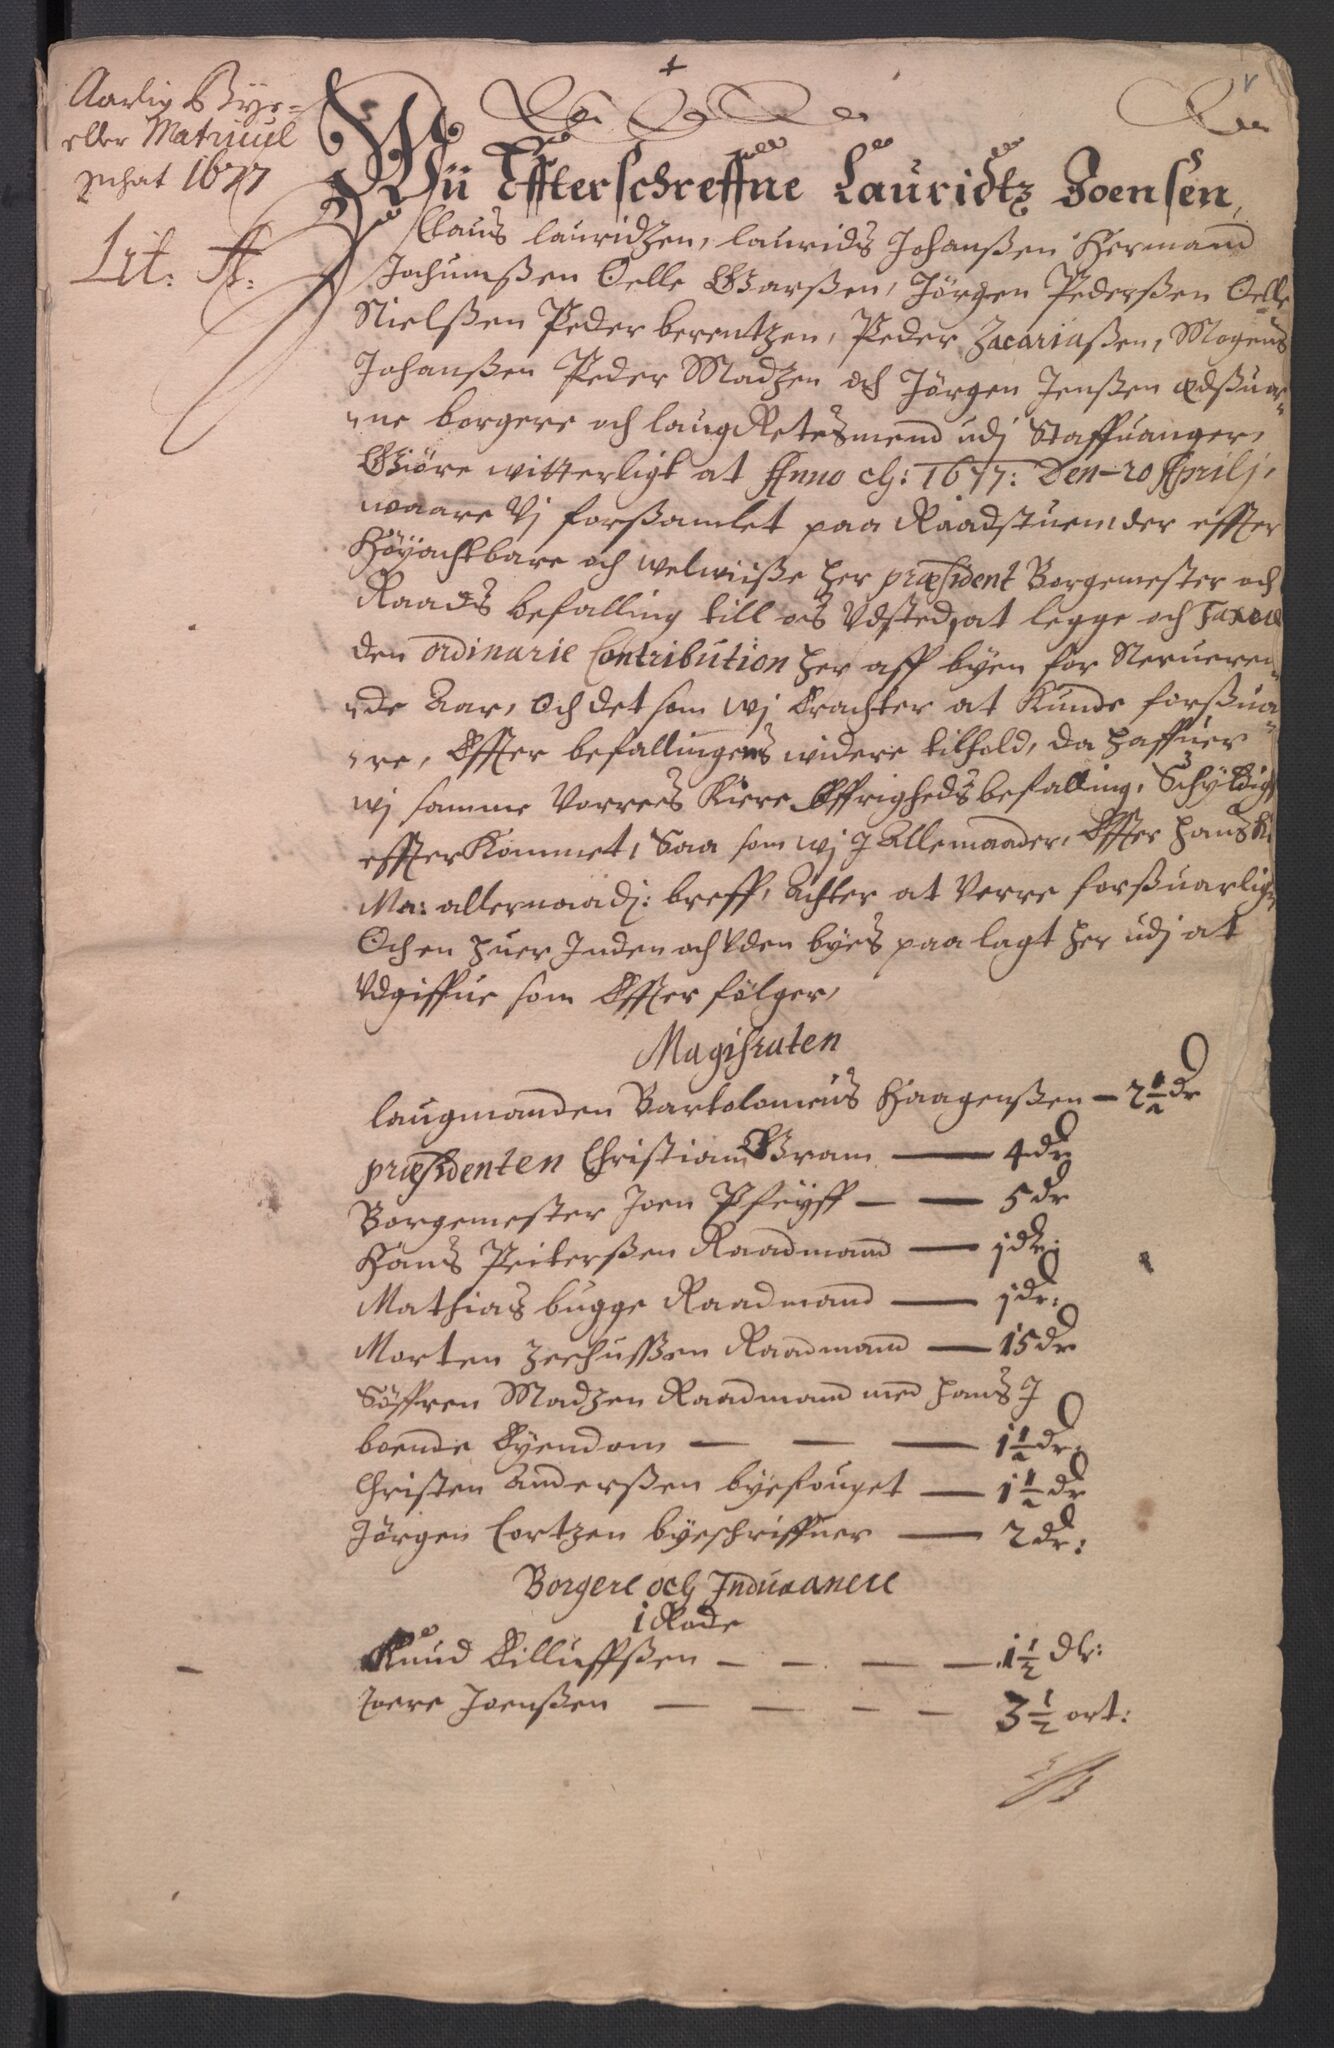 Aarlig Bye-
eller Matricul
schat 1677
Lit: A:
Wii Effterschreffne Lauridtz Joensen,
Claus lauridzen, laurids Johanßen Hermand
Jochumßen Oelle Giarßen, Jörgen Pederßen Oelle
Nielßen Peder berentzen, Peder Zacariaßen, Mogens
Johanßen Peder Madzen och Jörgen Jenßen edßuor-
ne borgere och laugRetesmend udj Staffuanger,
Giöre witterligt at Anno ch: 1677: Den 20 Aprilj,
waare Vj forßamlet paa Raadstuen der effter
Höyachtbare och welwiiße her præsident Borgemester och
Raads befalling till os Udsted, at legge och Taxere
den ordinarie Contribution her aff byen for Nerueren-
de Aar, Och det som wj Erachter at Kunde forßua-
re, Effter befallingens widere tilhold, da haffuer
wj samme Vorres Kiere Öffrigheds befalling, Schyldigst
effterkommet, Saa som wj J Allemaader, Effter hans K:
Ma: allernaadj: breff, Achter at Verre forßuarligt,
Och en huer Inden och Uden byes paa lagt her udj at
Udgiffue som Effter följger,
Magistraten
laugmanden Bartolomeus Haagenßen - 2 1/2 dr
præsidenten Christian Gram - 4 dr
Borgemester Joen Pheyff - 5 dr
Hans Peiterßen Raadmand - j dr:
Mathias bugge Raadmand - j dr:
Morten Zechußßen Raadmand - 15 dr
Söffren Madzen Raadmand med hans J
boende Eyendom - 1 1/2 dr:
Christen Anderßen byefouget - 1 1/2 dr
Jörgen Cortzen byeschriffuer - 2 dr:
Borgere och Induaanere
1 Rode
Knud Eilluffßen - 1 1/2 dr:
Toere Joenßen - 3 1/2 ort: